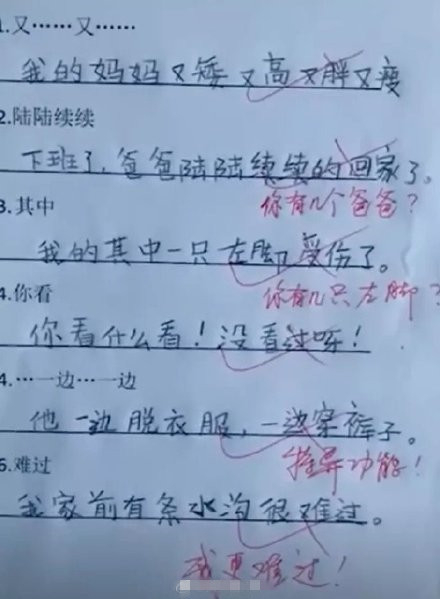 1.又……又……
我的妈妈又矮又高又胖又瘦
2.陆陆续续
下班了,爸爸陆陆续续的回家了。
你有几个爸爸?
3.其中
我的其中一只左脚受伤了。
4.你看
你有几只左脚?
你看什么看!没看过呀!
4.…一边…一边
他一边脱衣服,一边穿裤子。
5.难过
特异功能!
我家前有条水沟很难过。
我更难过!